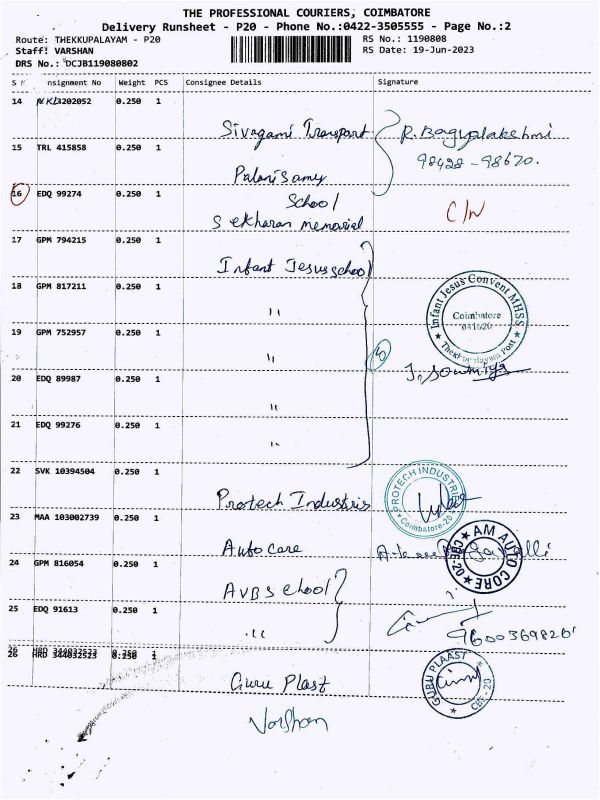 THE PROFESSIONAL COURIERS, COIMBATORE
Delivery Runsheet - P20 - Phone No.:0422-3505555 - Page No.:2
Route: THEKKUPALAYAM - P20
RS No.: 1190808
Staff: VARSHAN
RS Date: 19-Jun-2023
DRS No.: DCJB119080802
S nsignment No Weight PCS Consignee Details Signature
14 3202052 0.250 1
Sivagami Transport
15 TRL 415858 0.250 1
98428-98670.
Palanisamy
16 EDQ 99274 0.250 1
School
Sekharan memorial
C/N
17 GPM 794215 0.250 1
Infant Jesus school
18 GPM 817211 0.250 1
"
Infant Jesus Convent MHSS
Coimbatore
641020
19 GPM 752957 0.250 1
"
5
20 EDQ 89987 0.250 1
"
21 EDQ 99276 0.250 1
"
22 SVK 10394504 0.250 1
Protech Industris
PROTECH INDUSTRIE
Coimbatore-20
23 MAA 103002739 0.250 1
Auto care
AM AUTO CORE
CBE-20
24 GPM 816054 0.250 1
AVB school
25 EDQ 91613 0.250 1
"
9600369826
26 HRD 344032523 0.250 1
Guru Plast
GURU PLAAST
CBE-20
Varshan